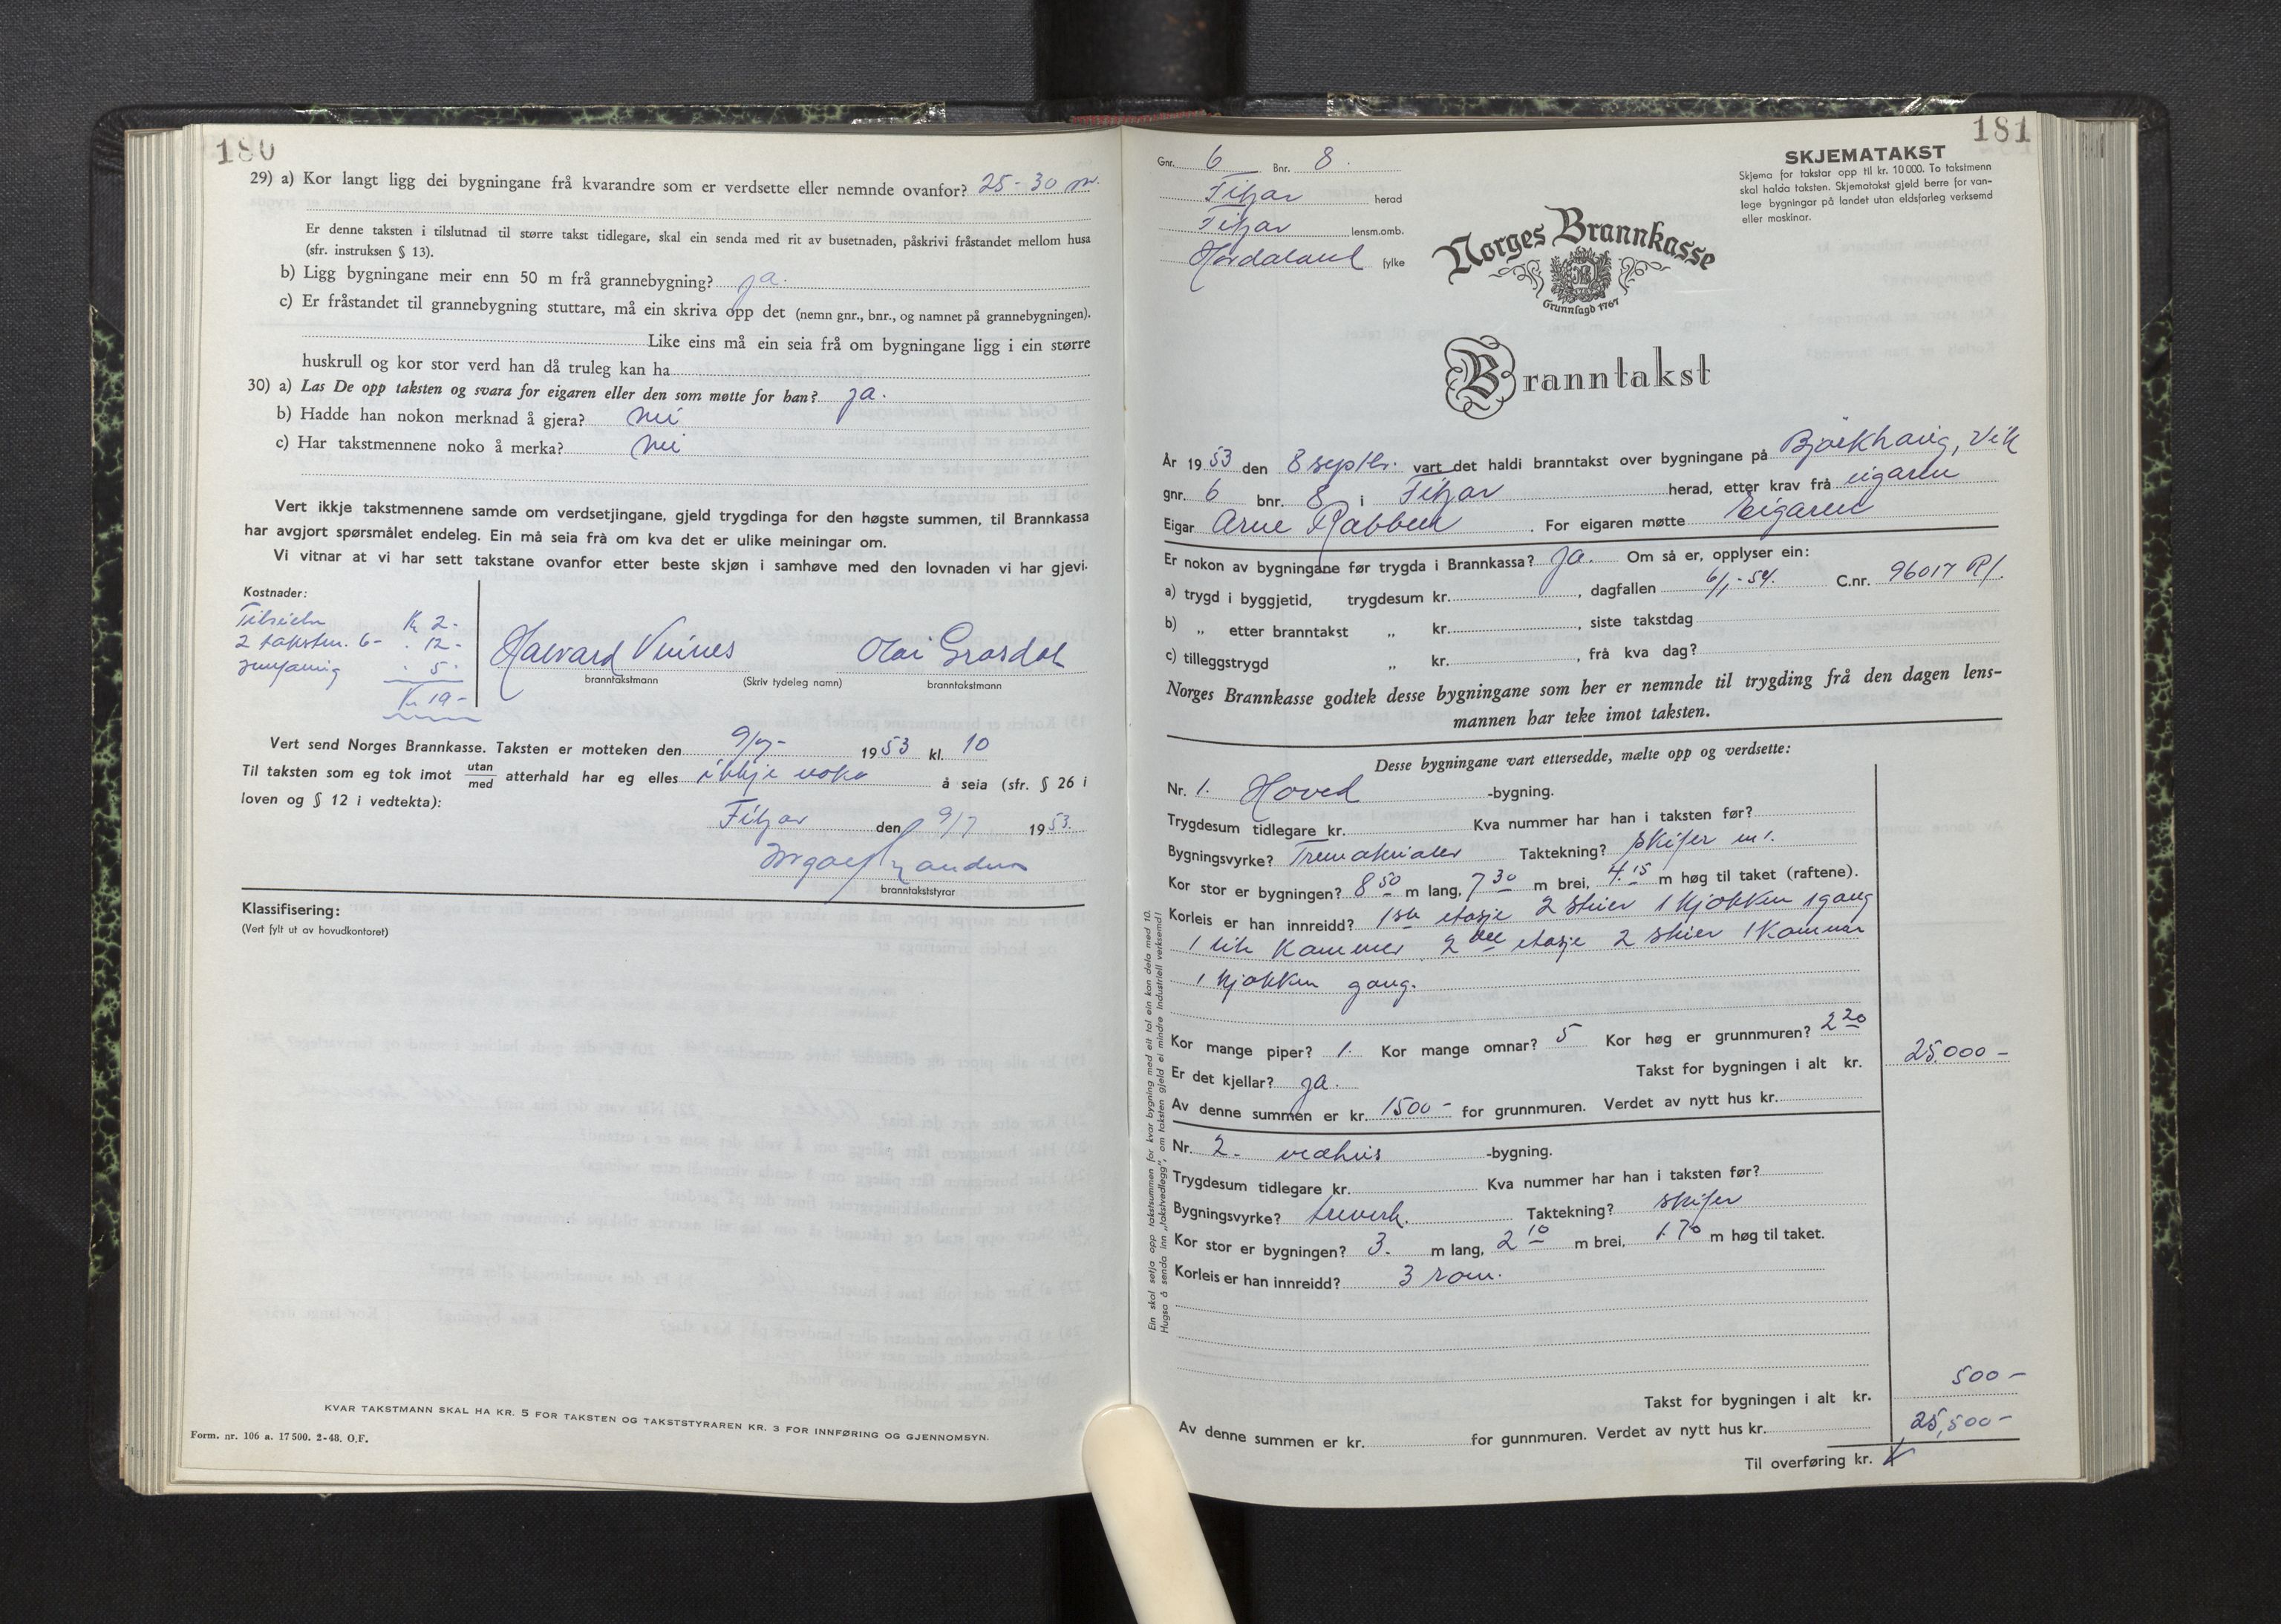 180
29) a) Kor langt ligg dei bygningane frå kvarandre som er verdsette eller nemnde ovanfor? 25-30 m.
Er denne taksten i tilslutnad til større takst tidlegare, skal ein senda med rit av busetnaden, påskrivi fråstandet mellom husa
(sfr. instruksen § 13).
b) Ligg bygningane meir enn 50 m frå grannebygning? ja.
c) Er fråstandet til grannebygning stuttare, må ein skriva opp det (nemn gnr., bnr., og namnet på grannebygningen).
Like eins må ein seia frå om bygningane ligg i ein større
huskrull og kor stor verd han då truleg kan ha
30) a) Las De opp taksten og svara for eigaren eller den som møtte for han? ja.
b) Hadde han nokon merknad å gjera? nei
c) Har takstmennene noko å merka? nei
Vert ikkje takstmennene samde om verdsetjingane, gjeld trygdinga for den høgste summen, til Brannkassa
har avgjort spørsmålet endeleg. Ein må seia frå om kva det er ulike meiningar om.
Vi vitnar at vi har sett takstane ovanfor etter beste skjøn i samhøve med den lovnaden vi har gjevi.
Kostnader:
Kr 2-
2 takstm. 6- . 12-
. 5-
Kr 19-
Halvard Vines Olai Grasdal
branntakstmann (Skriv tydeleg namn) branntakstmann
Vert send Norges Brannkasse. Taksten er motteken den 9/9- 1953 kl. 10
Til taksten som eg tok imot utan/med atterhald har eg elles ikkje noko å seia (sfr. § 26 i
loven og § 12 i vedtekta):
Fitjar den 9/9 1953.
branntakststyrar
Klassifisering:
(Vert fylt ut av hovudkontoret)
KVAR TAKSTMANN SKAL HA KR. 5 FOR TAKSTEN OG TAKSTSTYRAREN KR. 3 FOR INNFØRING OG GJENNOMSYN.
Form. nr. 106 a. 17500. 2-48. O.F.
181
Gnr. 6 Bnr. 8.
Fitjar herad
Fitjar lensm.omb.
Hordaland fylke
SKJEMATAKST
Skjema for takstar opp til kr. 10000. To takstmenn
skal halda taksten. Skjematakst gjeld berre for van-
lege bygningar på landet utan eldsfarleg verksemd
eller maskinar.
Norges Brannkasse
Grunnlagd 1767
Branntakst
År 1953 den 8 septbr. vart det haldi branntakst over bygningane på Bjørkhaug, Vik
gnr. 6 bnr. 8 i Fitjar herad, etter krav frå eigaren
Eigar Arne Rabben. For eigaren møtte Eigaren
Er nokon av bygningane før trygda i Brannkassa? Ja. Om så er, opplyser ein:
a) trygd i byggjetid, trygdesum kr. , dagfallen 6/1-54. C.nr. 96017 Pl.
b) „ etter branntakst „ kr. , siste takstdag
c) tilleggstrygd „ kr. , frå kva dag?
Norges Brannkasse godtek desse bygningane som her er nemnde til trygding frå den dagen lens-
mannen har teke imot taksten.
Desse bygningane vart ettersedde, mælte opp og verdsette:
Nr. 1. Hoved -bygning.
Trygdesum tidlegare kr. Kva nummer har han i taksten før?
Bygningsvyrke? Trematerialer Taktekning? skifer m1.
Kor stor er bygningen? 8 50 m lang, 7 30 m brei, 4.15 m høg til taket (raftene).
Korleis er han innreidd? 1ste etasje 2 stuer 1 kjøkken 1 gang
1 lite kammer. 2den etasje 2 stuer 1 kammer
1 kjøkken gang.
Kor mange piper? 1. Kor mange omnar? 5 Kor høg er grunnmuren? 2 20
Er det kjellar? ja. Takst for bygningen i alt kr. 25.000 -
Av denne summen er kr. 1500 - for grunnmuren. Verdet av nytt hus kr.
Nr. 2. vedhus -bygning.
Trygdesum tidlegare kr. Kva nummer har han i taksten før?
Bygningsvyrke? treverk. Taktekning? skifer
Kor stor er bygningen? 3. m lang, 2 10 m brei, 1.70 m høg til taket.
Korleis er han innreidd? 3 rom.
500 -
Takst for bygningen i alt kr.
Av denne summen er kr. for gunnmuren. Verdet av nytt hus kr. 25,500 -
Til overføring kr.
Ein skal setja opp takstsummen for kvar bygning med eit tal ein kan dela med 10.
Hugsa å senda inn „takstvedlegg", om taksten gjeld ei mindre industriell verksemd!